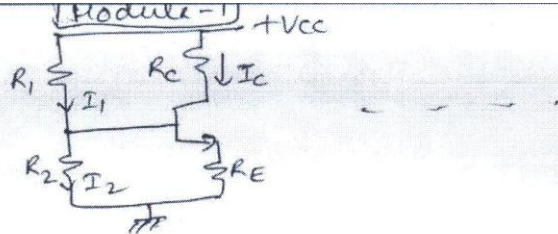 Module-1
+VCC
R1
RC
IC
I1
R2
I2
RE